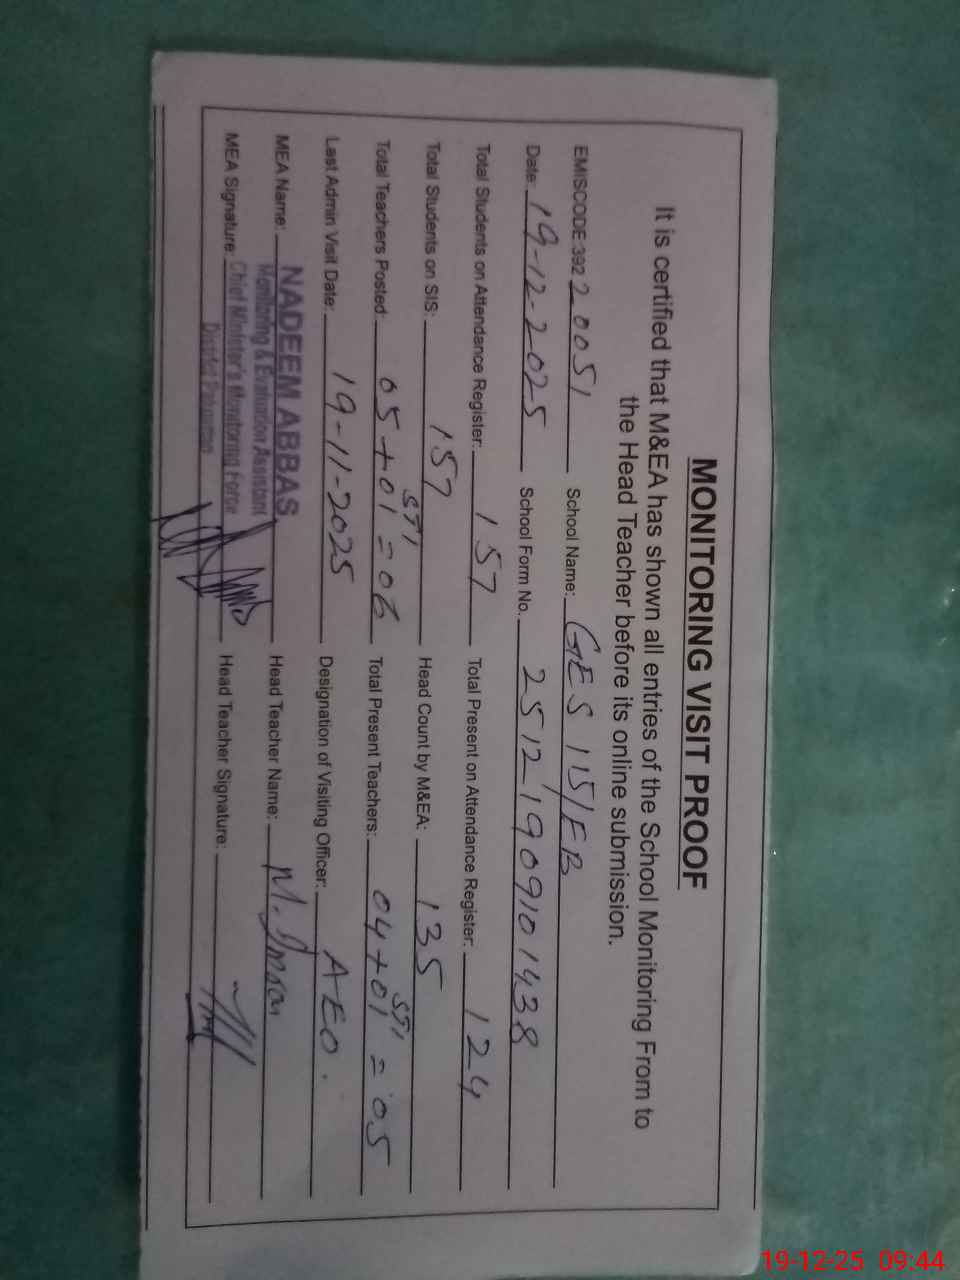 MONITORING VISIT PROOF
It is certified that M&EA has shown all entries of the School Monitoring From to
the Head Teacher before its online submission.
EMISCODE:392 20051 School Name: GES 115/EB
Date: 19-12-2025 School Form No. 2512190910 1438
Total Students on Attendance Register: 157 Total Present on Attendance Register: 124
Total Students on SIS: 157 Head Count by M&EA: 135
Total Teachers Posted: 05+01 STI =06 Total Present Teachers: 04+01 STI =05
Last Admin Visit Date: 19-11-2025 Designation of Visiting Officer: AEO.
MEA Name: NADEEM ABBAS Head Teacher Name: M. Imran
Monitoring & Evaluation Assistant
MEA Signature: Chief Minister's Monitoring Force Head Teacher Signature:
District
19-12-25 09:44